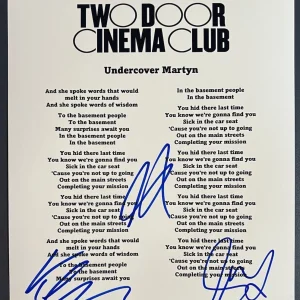 TWO DOOR
CINEMA CLUB
Undercover Martyn
And she spoke words that would
melt in your hands
And she spoke words of wisdom
To the basement people
To the basement
Many surprises await you
In the basement
You hid there last time
You know we're gonna find you
Sick in the car seat
'Cause you're not up to going
Out on the main streets
Completing your mission
You hid there last time
You know we're gonna find you
Sick in the car seat
'Cause you're not up to going
Out on the main streets
Completing your mission
And she spoke words that would
melt in your hands
And she spoke words of wisdom
To the basement people
To the basement
Many surprises await you
In the basement people
In the basement
You hid there last time
You know we're gonna find you
Sick in the car seat
'Cause you're not up to going
Out on the main streets
Completing your mission
You hid there last time
You know we're gonna find you
Sick in the car seat
'Cause you're not up to going
Out on the main streets
Completing your mission
You hid there last time
You know we're gonna find you
Sick in the car seat
'Cause you're not up to going
Out on the main streets
Completing your mission